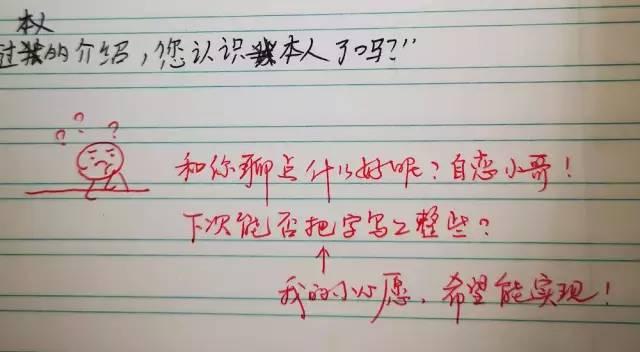 本人
过我的介绍，您认识我本人了吗？”
? ? ?
和你聊点什么好呢？自恋小哥！
下次能否把字写工整些？
↑
我的小心愿，希望能实现！